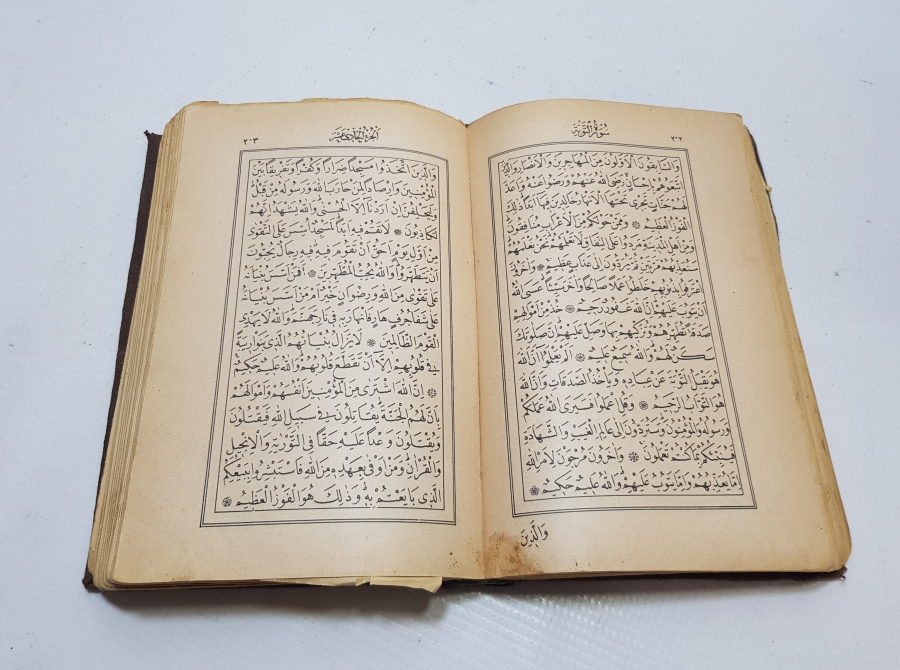 ٢٠٢
سُورَةُ التَّوْبَةِ
وَالسَّابِقُونَ الْأَوَّلُونَ مِنَ الْمُهَاجِرِينَ وَالْأَنْصَارِ وَالَّذِينَ
اتَّبَعُوهُمْ بِإِحْسَانٍ رَضِيَ اللهُ عَنْهُمْ وَرَضُوا عَنْهُ وَأَعَدَّ
لَهُمْ جَنَّاتٍ تَجْرِي تَحْتَهَا الْأَنْهَارُ خَالِدِينَ فِيهَا أَبَدًا ذٰلِكَ
الْفَوْزُ الْعَظِيمُ ۞ وَمِمَّنْ حَوْلَكُمْ مِنَ الْأَعْرَابِ مُنَافِقُونَ
وَمِنْ أَهْلِ الْمَدِينَةِ مَرَدُوا عَلَى النِّفَاقِ لَا تَعْلَمُهُمْ نَحْنُ نَعْلَمُهُمْ
سَنُعَذِّبُهُمْ مَرَّتَيْنِ ثُمَّ يُرَدُّونَ إِلَى عَذَابٍ عَظِيمٍ ۞ وَآخَرُونَ
اعْتَرَفُوا بِذُنُوبِهِمْ خَلَطُوا عَمَلًا صَالِحًا وَآخَرَ سَيِّئًا عَسَى اللهُ
أَنْ يَتُوبَ عَلَيْهِمْ إِنَّ اللهَ غَفُورٌ رَحِيمٌ ۞ خُذْ مِنْ أَمْوَالِهِمْ
صَدَقَةً تُطَهِّرُهُمْ وَتُزَكِّيهِمْ بِهَا وَصَلِّ عَلَيْهِمْ إِنَّ صَلٰوتَكَ
سَكَنٌ لَهُمْ وَاللهُ سَمِيعٌ عَلِيمٌ ۞ أَلَمْ يَعْلَمُوا أَنَّ اللهَ
هُوَ يَقْبَلُ التَّوْبَةَ عَنْ عِبَادِهِ وَيَأْخُذُ الصَّدَقَاتِ وَأَنَّ اللهَ
هُوَ التَّوَّابُ الرَّحِيمُ ۞ وَقُلِ اعْمَلُوا فَسَيَرَى اللهُ عَمَلَكُمْ
وَرَسُولُهُ وَالْمُؤْمِنُونَ وَسَتُرَدُّونَ إِلَى عَالِمِ الْغَيْبِ وَالشَّهَادَةِ
فَيُنَبِّئُكُمْ بِمَا كُنْتُمْ تَعْمَلُونَ ۞ وَآخَرُونَ مُرْجَوْنَ لِأَمْرِ اللهِ
إِمَّا يُعَذِّبُهُمْ وَإِمَّا يَتُوبُ عَلَيْهِمْ وَاللهُ عَلِيمٌ حَكِيمٌ ۞
وَالَّذِينَ
اَلْجُزْءُ الْحَادِي عَشَرَ
٢٠٣
وَالَّذِينَ اتَّخَذُوا مَسْجِدًا ضِرَارًا وَكُفْرًا وَتَفْرِيقًا بَيْنَ
الْمُؤْمِنِينَ وَإِرْصَادًا لِمَنْ حَارَبَ اللهَ وَرَسُولَهُ مِنْ قَبْلُ
وَلَيَحْلِفُنَّ إِنْ أَرَدْنَا إِلَّا الْحُسْنٰى وَاللهُ يَشْهَدُ إِنَّهُمْ
لَكَاذِبُونَ ۞ لَا تَقُمْ فِيهِ أَبَدًا لَمَسْجِدٌ أُسِّسَ عَلَى التَّقْوٰى
مِنْ أَوَّلِ يَوْمٍ أَحَقُّ أَنْ تَقُومَ فِيهِ فِيهِ رِجَالٌ يُحِبُّونَ
أَنْ يَتَطَهَّرُوا وَاللهُ يُحِبُّ الْمُطَّهِّرِينَ ۞ أَفَمَنْ أَسَّسَ بُنْيَانَهُ
عَلَى تَقْوٰى مِنَ اللهِ وَرِضْوَانٍ خَيْرٌ أَمْ مَنْ أَسَّسَ بُنْيَانَهُ
عَلَى شَفَا جُرُفٍ هَارٍ فَانْهَارَ بِهِ فِي نَارِ جَهَنَّمَ وَاللهُ لَا يَهْدِي
الْقَوْمَ الظَّالِمِينَ ۞ لَا يَزَالُ بُنْيَانُهُمُ الَّذِي بَنَوْا رِيبَةً
فِي قُلُوبِهِمْ إِلَّا أَنْ تَقَطَّعَ قُلُوبُهُمْ وَاللهُ عَلِيمٌ حَكِيمٌ
۞ إِنَّ اللهَ اشْتَرٰى مِنَ الْمُؤْمِنِينَ أَنْفُسَهُمْ وَأَمْوَالَهُمْ
بِأَنَّ لَهُمُ الْجَنَّةَ يُقَاتِلُونَ فِي سَبِيلِ اللهِ فَيَقْتُلُونَ
وَيُقْتَلُونَ وَعْدًا عَلَيْهِ حَقًّا فِي التَّوْرٰيةِ وَالْإِنْجِيلِ
وَالْقُرْآنِ وَمَنْ أَوْفٰى بِعَهْدِهِ مِنَ اللهِ فَاسْتَبْشِرُوا بِبَيْعِكُمُ
الَّذِي بَايَعْتُمْ بِهِ وَذٰلِكَ هُوَ الْفَوْزُ الْعَظِيمُ ۞